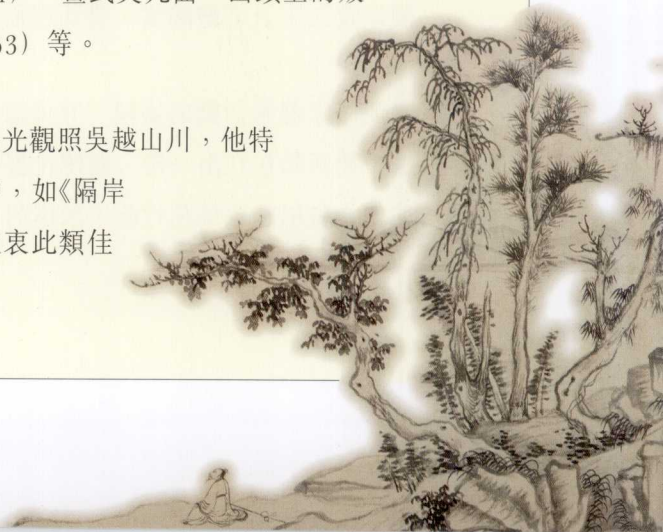 53) 等。
光觀照吳越山川，他特
，如《隔岸
衷此類佳